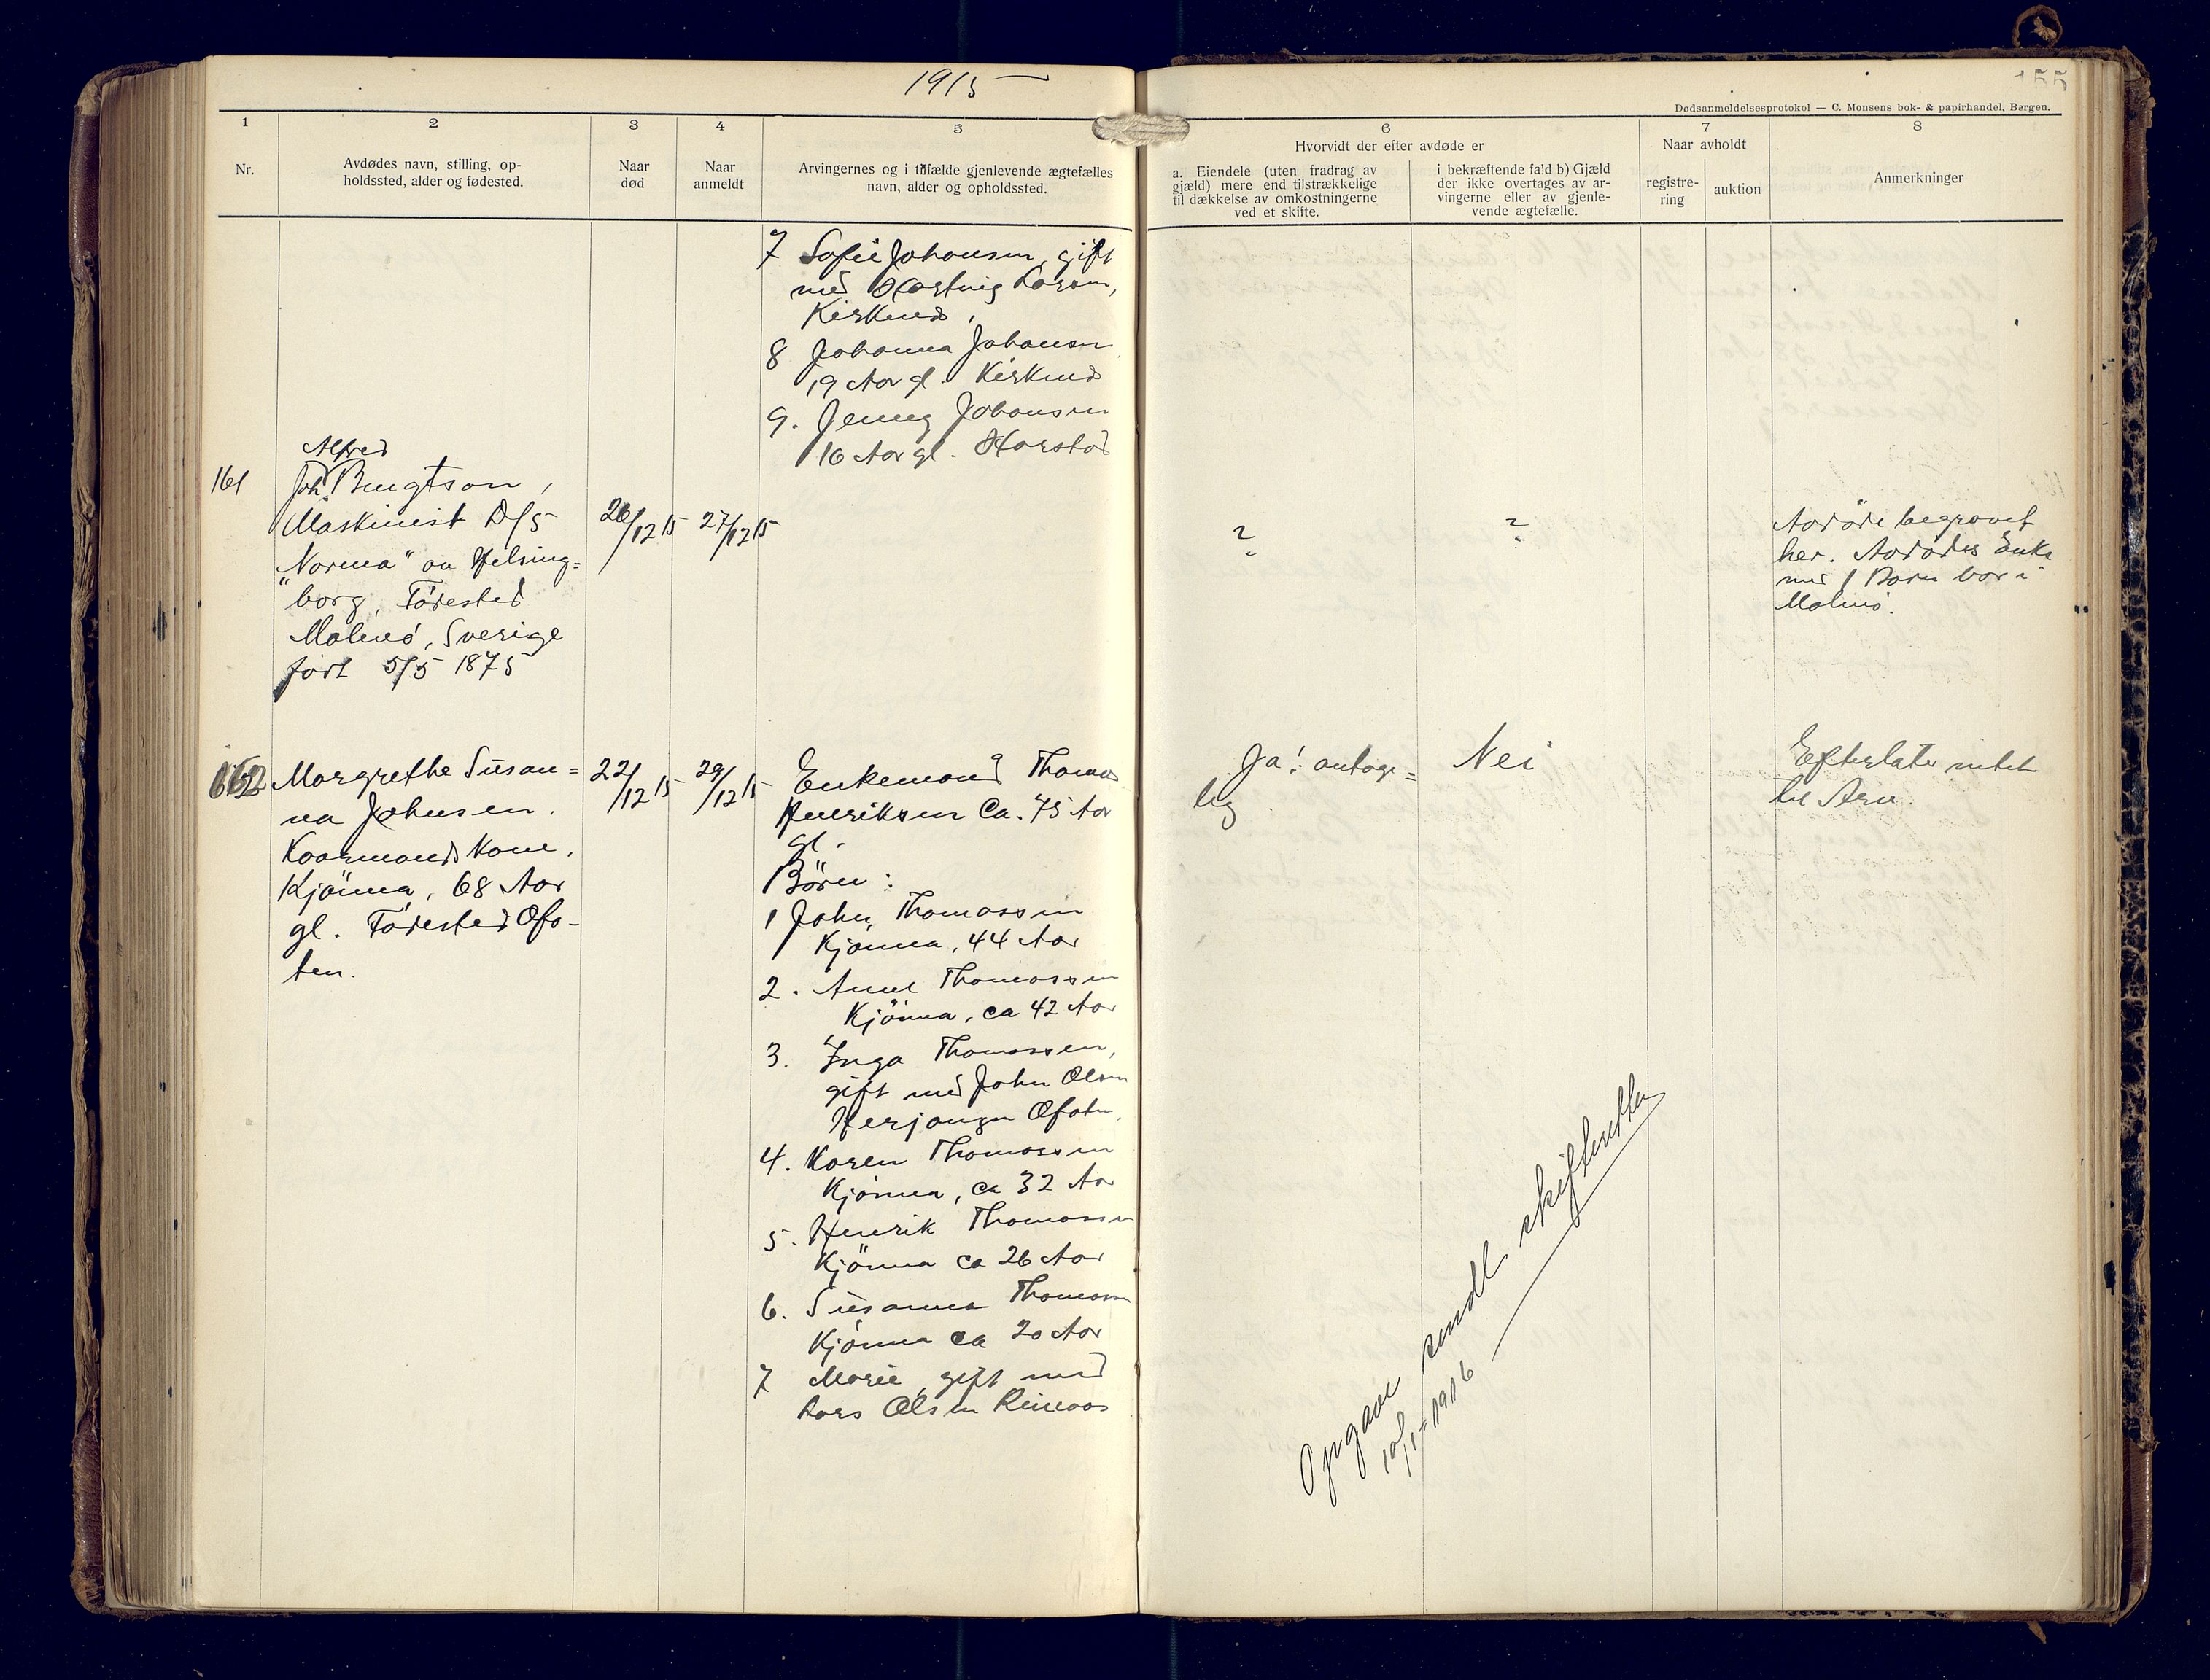 1915
155
Dødsanmeldelsesprotokol — C. Monsens bok- & papirhandel, Bergen.
1
2
3
4
5
6
7
8
Nr.
Avdødes navn, stilling, op-
holdssted, alder og fødested.
Naar
død
Naar
anmeldt
Arvingernes og i tilfælde gjenlevende ægtefælles
navn, alder og opholdssted.
Hvorvidt der efter avdøde er
a. Eiendele (uten fradrag av
gjæld) mere end tilstrækkelige
til dækkelse av omkostningerne
ved et skifte.
i bekræftende fald b) Gjæld
der ikke overtages av ar-
vingerne eller av gjenle-
vende ægtefælle.
Naar avholdt
registre-
ring
auktion
Anmerkninger
7 Sofie Johansen, gift
med Hartvig Larsen,
8 Johanna Johansen
19 Aar gl.
9. Jenny Johansen
16 Aar gl. Harstad
161
Alfred
Joh. Bengtson,
Maskinist D/S
"Norma" av Helsing=
borg, Födested
Malmö, Sverige
födt 5/5 1875
26/12 15
27/12 15
?
?
Avdöde begravet
her. Avdødes Enke
med 1 Barn bor i
Malmö.
162
Margrethe Susan=
na Johnsen.
Kaarmands Kone.
Kjönna, 68 Aar
gl. Födested Ofo-
ten.
22/12 15
29/12 15
Enkemand Thomas
Henriksen Ca. 75 Aar
gl.
Börn:
1 John Thomassen
Kjönna, 44 Aar
2. Anne Thomassen
Kjönna, ca 42 Aar
3. Inga Thomassen,
gift med John Olsen
Herjangen Ofoten.
4. Karen Thomassen
Kjönna, ca 32 Aar
5. Henrik Thomassen
Kjönna ca 26 Aar
6. Susanna Thomassen
Kjönna ca 20 Aar
7 Marie, gift med
Lars Olsen
Ja! antage=
lig.
Nei
Efterlater intet
til Arv.
Opgave sendt skifteretten
10/1-1916